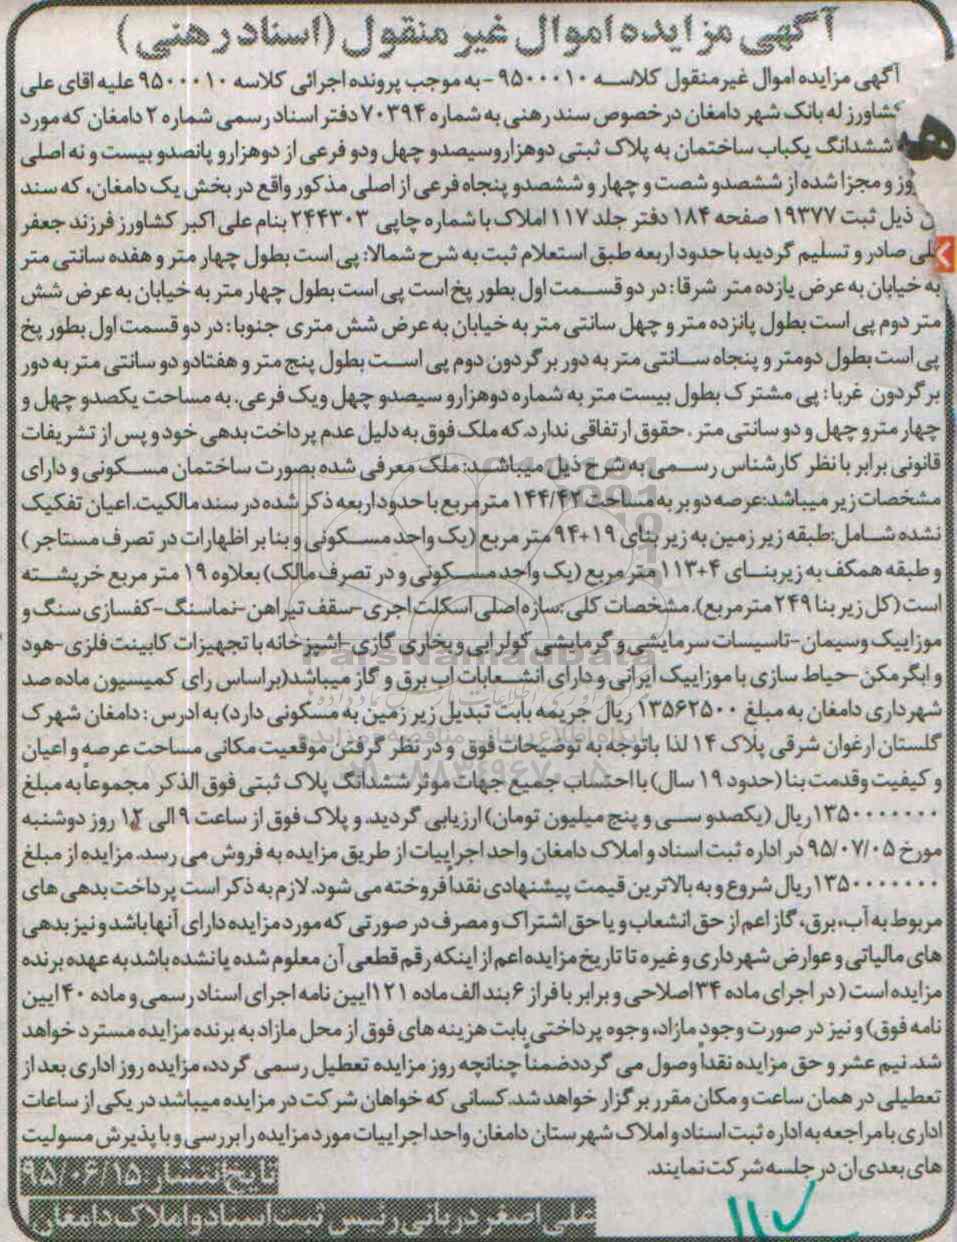 آگهی مزایده اموال غیر منقول (اسناد رهنی)
آگهی مزایده اموال غیرمنقول کلاسه ۹۵۰۰۰۱۰ - به موجب پرونده اجرائی کلاسه ۹۵۰۰۰۱۰ علیه اقای علی
کشاورز له بانک شهر دامغان در خصوص سند رهنی به شماره ۷۰۳۹۴ دفتر اسناد رسمی شماره ۲ دامغان که مورد
ششدانگ یکباب ساختمان به پلاک ثبتی دوهزاروسیصدو چهل ودو فرعی از دوهزارو پانصدو بیست و نه اصلی
و مجزا شده از ششصدو شصت و چهار و ششصدو پنجاه فرعی از اصلی مذکور واقع در بخش یک دامغان، که سند
ذیل ثبت ۱۹۳۷۷ صفحه ۱۸۴ دفتر جلد ۱۱۷ املاک با شماره چاپی ۲۴۴۳۰۳ بنام علی اکبر کشاورز فرزند جعفر
صادر و تسلیم گردید با حدود اربعه طبق استعلام ثبت به شرح شمالا: پی است بطول چهار متر و هفده سانتی متر
به خیابان به عرض یازده متر شرقا: در دو قسمت اول بطور پخ است پی است بطول چهار متر به خیابان به عرض شش
متر دوم پی است بطول پانزده متر و چهل سانتی متر به خیابان به عرض شش متری جنوبا: در دو قسمت اول بطور پخ
پی است بطول دومتر و پنجاه سانتی متر به دور برگردون دوم پی است بطول پنج متر و هفتادو دو سانتی متر به دور
برگردون غربا: پی مشترک بطول بیست متر به شماره دوهزارو سیصدو چهل ویک فرعی. به مساحت یکصدو چهل و
چهار مترو چهل و دو سانتی متر. حقوق ارتفاقی ندارد. که ملک فوق به دلیل عدم پرداخت بدهی خود و پس از تشریفات
قانونی برابر با نظر کارشناس رسمی به شرح ذیل میباشد: ملک معرفی شده بصورت ساختمان مسکونی و دارای
مشخصات زیر میباشد:عرصه دو بر به مساحت ۱۴۴/۴۲ مترمربع با حدود اربعه ذکر شده در سند مالکیت. اعیان تفکیک
نشده شامل:طبقه زیر زمین به زیر بنای ۱۹+۹۴ متر مربع (یک واحد مسکونی و بنا بر اظهارات در تصرف مستاجر)
و طبقه همکف به زیربنای ۴+۱۱۳ متر مربع (یک واحد مسکونی و در تصرف مالک) بعلاوه ۱۹ متر مربع خرپشته
است (کل زیر بنا ۲۴۹ مترمربع). مشخصات کلی :سازه اصلی اسکلت اجری-سقف تیراهن-نماسنگ-کفسازی سنگ و
موزاییک وسیمان-تاسیسات سرمایشی و گرمایشی کولر ابی و بخاری گازی -اشپزخانه با تجهیزات کابینت فلزی-هود
و ابگرمکن-حیاط سازی با موزاییک ایرانی و دارای انشعابات اب برق و گاز میباشد(براساس رای کمیسیون ماده صد
شهرداری دامغان به مبلغ ۱۳۵۶۲۵۰۰ ریال جریمه بابت تبدیل زیر زمین به مسکونی دارد) به ادرس: دامغان شهرک
گلستان ارغوان شرقی پلاک ۱۴ لذا باتوجه به توضیحات فوق و در نظر گرفتن موقعیت مکانی مساحت عرصه و اعیان
و کیفیت وقدمت بنا (حدود ۱۹ سال) با احتساب جمیع جهات موثر ششدانگ پلاک ثبتی فوق الذکر مجموعاً به مبلغ
۱۳۵۰۰۰۰۰۰۰ریال (یکصدو سی و پنج میلیون تومان) ارزیابی گردید. و پلاک فوق از ساعت ۹ الی ۱۲ روز دوشنبه
مورخ ۹۵/۰۷/۰۵ در اداره ثبت اسناد و املاک دامغان واحد اجراییات از طریق مزایده به فروش می رسد. مزایده از مبلغ
۱۳۵۰۰۰۰۰۰۰ریال شروع و به بالاترین قیمت پیشنهادی نقداً فروخته می شود. لازم به ذکر است پرداخت بدهی های
مربوط به آب، برق، گاز اعم از حق انشعاب و یا حق اشتراک و مصرف در صورتی که مورد مزایده دارای آنها باشد و نیز بدهی
های مالیاتی و عوارض شهرداری و غیره تا تاریخ مزایده اعم از اینکه رقم قطعی آن معلوم شده یا نشده باشد به عهده برنده
مزایده است (در اجرای ماده ۳۴اصلاحی و برابر با فراز ۶ بند الف ماده ۱۲۱ایین نامه اجرای اسناد رسمی و ماده ۴۰ ایین
نامه فوق) و نیز در صورت وجود مازاد، وجوه پرداختی بابت هزینه های فوق از محل مازاد به برنده مزایده مسترد خواهد
شد. نیم عشر و حق مزایده نقداً وصول می گرددضمناً چنانچه روز مزایده تعطیل رسمی گردد، مزایده روز اداری بعد از
تعطیلی در همان ساعت و مکان مقرر برگزار خواهد شد. کسانی که خواهان شرکت در مزایده میباشد در یکی از ساعات
اداری با مراجعه به اداره ثبت اسناد و املاک شهرستان دامغان واحد اجراییات مورد مزایده را بررسی و با پذیرش مسولیت
های بعدی ان در جلسه شرکت نمایند.
تایخ انتشار ۹۵/۰۶/۱۵
علی اصغر دربانی رئیس ثبت اسناد و املاک دامغان
۱۱۷
ParsNamadData